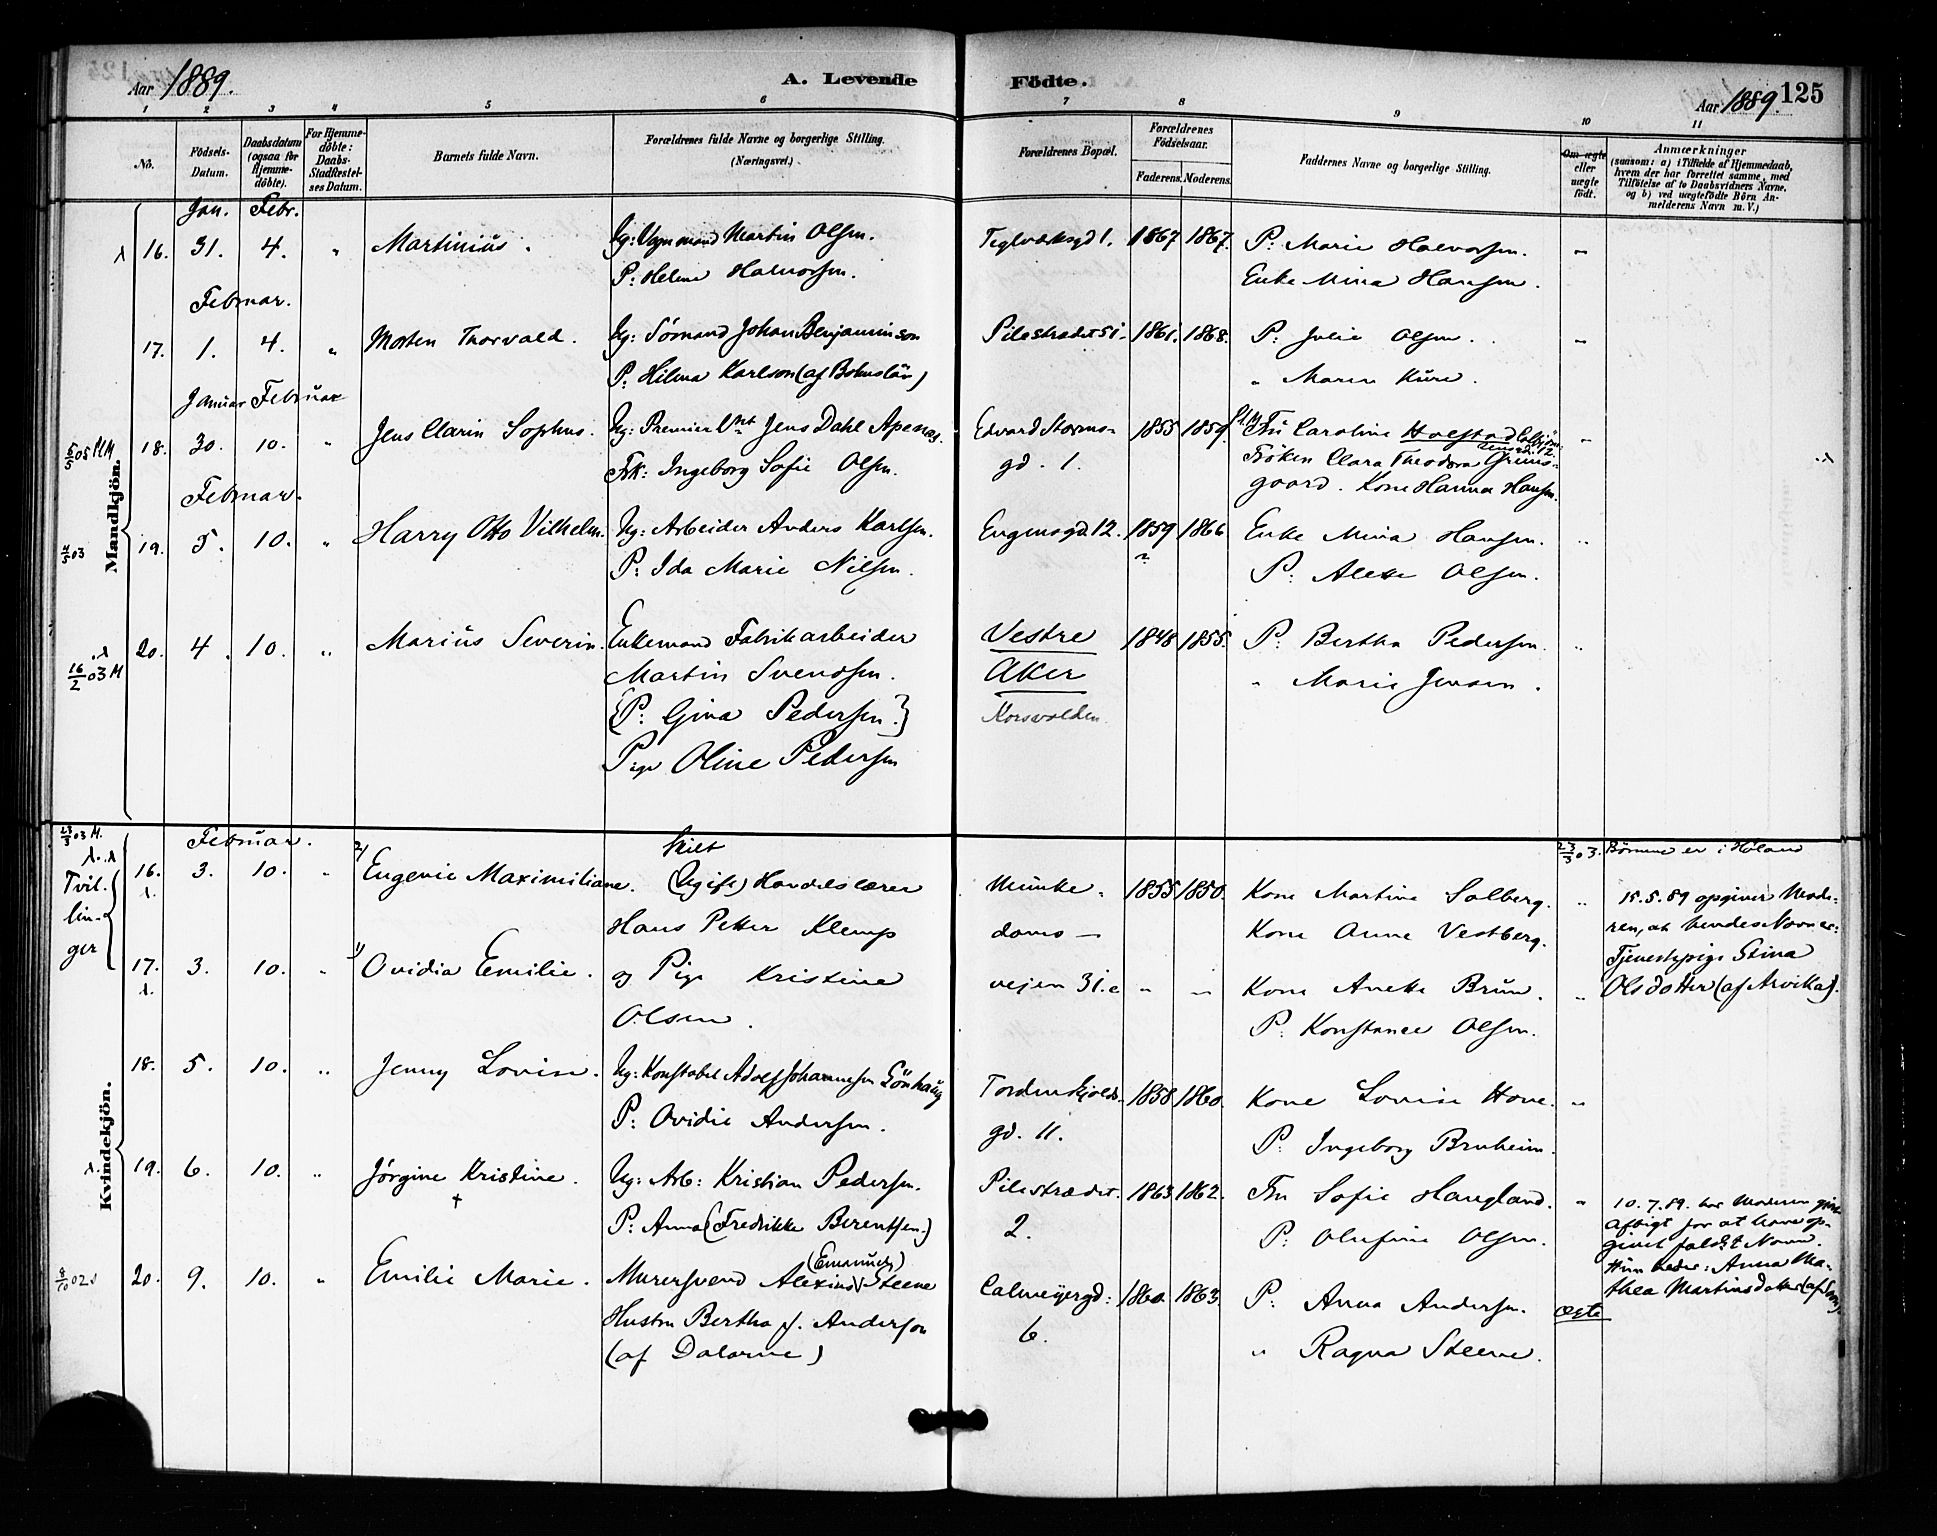 Aar 1889.
A. Levende
Födte.
Aar 1889.
125
1 2 3 4 5 6 7 8 9 10 11
No.
Födsels-
Datum.
Daabsdatum
(ogsaa for
Hjemme-
döbte).
For Hjemme-
döbte:
Daabs-
Stadfæstel-
ses Datum.
Barnets fulde Navn.
Forældrenes fulde Navne og borgerlige Stilling.
(Næringsvei.)
Forældrenes Bopæl.
Forældrenes
Födselsaar.
Faderens. Moderens.
Faddernes Navne og borgerlige Stilling.
Om ægte
eller
uægte
födt.
Anmærkninger
(saasom: a) i Tilfælde af Hjemmedaab,
hvem der har forrettet samme, med
Tilföielse af to Daabsvidners Navne,
og b) ved uægtefödte Börn An-
melderens Navn m. V.)
Mandkjön.
Jan. Febr.
16. 31. 4. „ Martinius. Ug: Martin Olsen. 1. 1867 1867. P: Marie Halvorsen. „
P: Helene Halvorsen. Enke Mina Hansen.
Februar.
17. 1. 4. „ Morten Thorvald. Ug: Sömand Johan Benjaminson Pilestrædet 51. 1861. 1868. P: Julie Olsen. „
P: Hilma Karlson (af Bohuslän) „ Maren Kure.
Januar Februar
18. 30. 10. „ Jens Clarin Sophus. Ug: Premier Jens Dahl Apenæs. Edvard Storms- 1855 1859. Fru Caroline Halstad „
Frk: Ingeborg Sofie Olsen. gd. 1. Fröken Clara Theodora Grims-
gaard. Kone Hanna Hansen.
Februar.
19. 5. 10. „ Harry Otto Vilhelm. Ug: Arbeider Anders Karlsen. Eugensgd. 12. 1859 1866 Enke Mina Hansen. „
P: Ida Marie Nilsen. P: Alette Olsen.
20. 4. 10. „ Marius Severin. Enkemand Fabrikarbeider Vestre 1848 1855. P: Bertha Pedersen. „
16/2 03 M Martin Svendsen. Aker „ Marie Jensen.
{P: Gina Pedersen.} Korsvolden.
Pige Oline Pedersen
Kvindekjön.
Februar.
Tvil-
lin-
ger
Skilt 23/3 03. Börnene er i Höland
16. 3. 10. „ 2) Eugenie Maximiliane. (Ugift) Handelslærer Munke- 1855 1850. Kone Martine Solberg. „ 15.5.89 opgiver Mode-
Hans Petter Klemp dams- Kone Anne Vestberg. ren, at hendes Navn er:
17. 3. 10. „ 1) Ovidia Emilie. og Pige Kristine veien 31.c „ „ Kone Anette Brun. „ Tjenestepige Stina
Olsen. P: Konstance Olsen. Olsdotter (af Arvika).
18. 5. 10. „ Jenny Lovise. Ug: Konstabel Adolf Johannesen Lönhaug Tordenskjolds- 1858 1860. Kone Lovise Hove. „
P: Ovidie Andersen. gd. 11. P: Ingeborg Bruheim.
19. 6. 10. „ Jörgine Kristine. † Ug: Arb: Kristian Pedersen. Pilestrædet 1863 1862. Fru Sofie Haugland. „ 10.7.89. har Moderen gjort
P: Anna (Fredrikke Berentsen.) 2. P: Olufine Olsen. Afbigt for at have op-
givet falskt Navn.
Hun heder: Anna Ma-
thea Martinsdatter
20. 9. 10. „ Emilie Marie. Murersvend Alexius (Emanuel) Steene Calmeyergd: 1860. 1863. P: Anna Andersen. ægte
Hustru Bertha f. Anderson 6. „ Ragna Steene.
(af Dalarne)